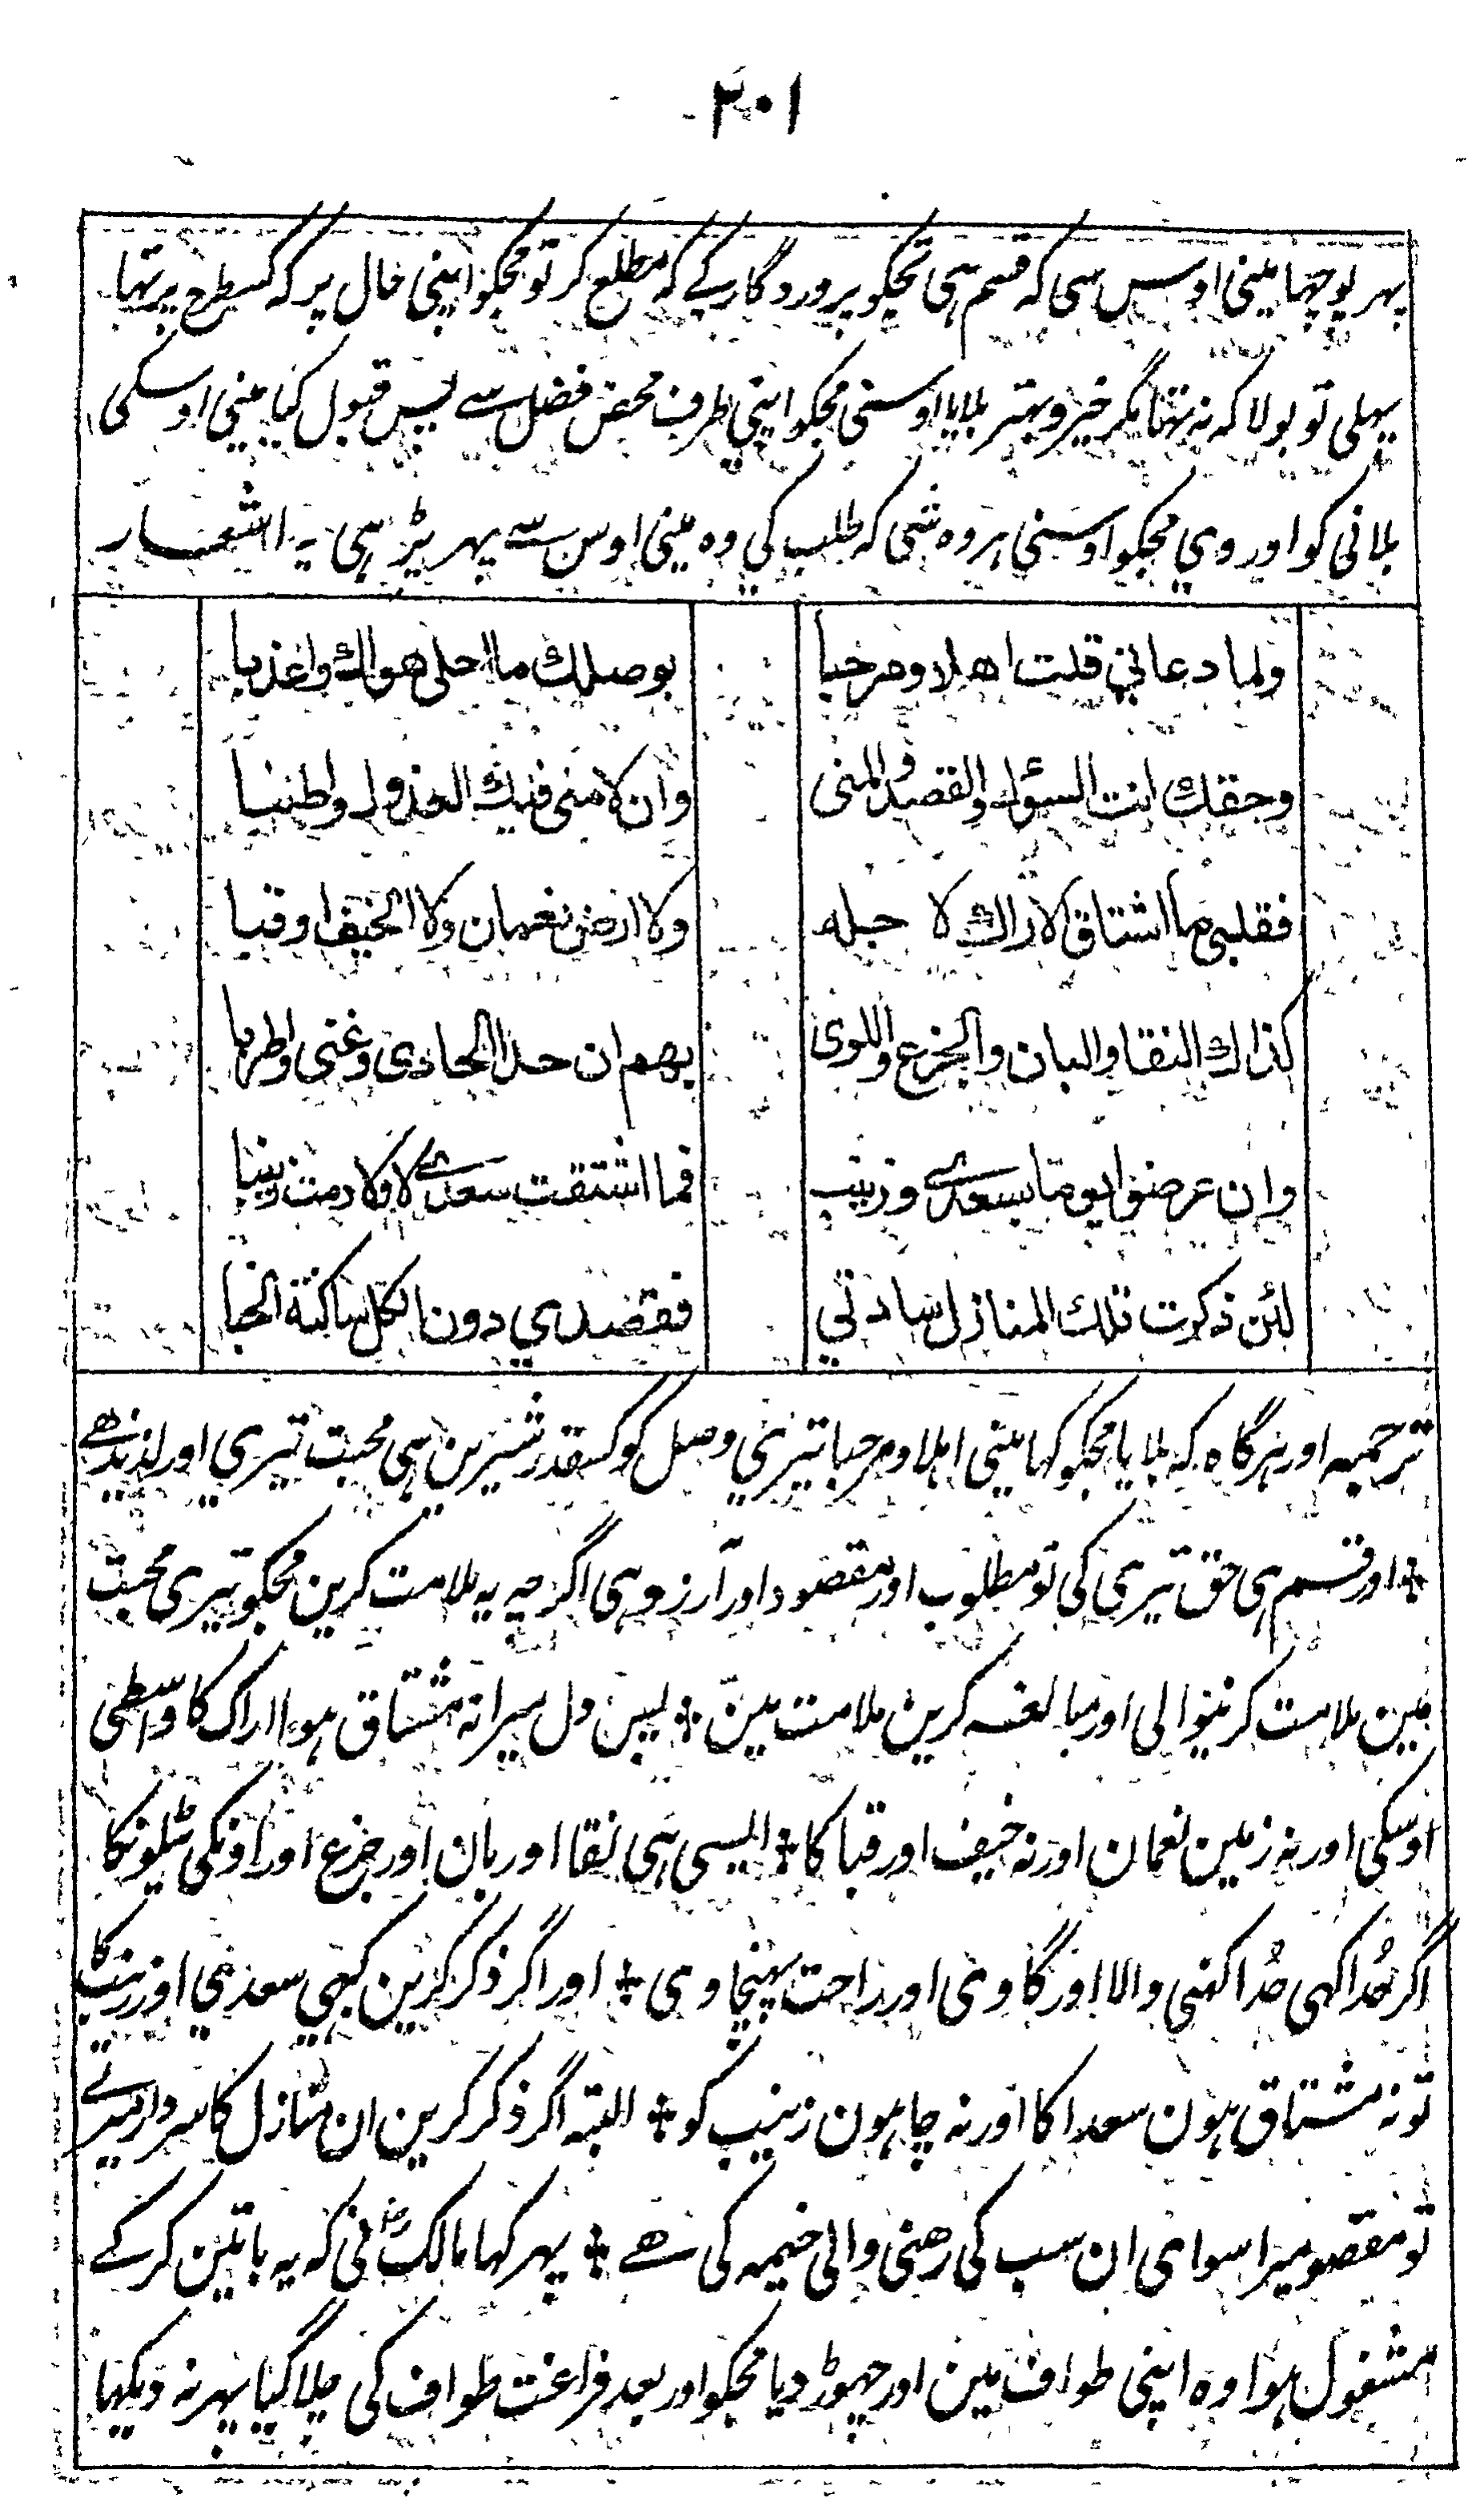 ۲۰۱
پہر پوچہا مینی اوسس سی کہ قسم ہی تجکو پروردگار کے کہ مطلع کر تو مجکو اپنی حال پر کہ کسطرح پر تہا
پہلی تو بولا کہ نہ تہا مگر خیر و بہتر بلایا اوسنی مجکو اپنی طرف محض فضل سے پس قبول کیا مینی اوسکی
بلانی کو اور دی مجکو اوسنی ہر وہ شی کہ طلب کی وہ مینی اوس سے پہر پڑہی یہ اشعار
ولما دعاني قلت اهلا ومرحبا بوصلك ما احلى هواك واعذبا
وحقك انت السؤل والقصد والمنى وان لامني فيك العذول واطنبا
فقلبي ما اشتاق الاراك لاجله ولا ارض نعمان ولا الخيف اوقبا
كذاك النقا والبان والجزع واللوى بهم ان حدا الحادي وغنى واطربا
وان عرضوا يوما بسعدى وزينب فما اشتقت سعدى لا ولا رمت زينبا
لئن ذكرت تلك المنازل سادتي فقصدي دون الكل ساكنة الخبا
ترجمہ اور ہرگاہ کہ بلایا مجکو کہا مینی اہلا و مرحبا تیری وصل کو کسقدر شیرین ہی محبت تیری اور لذیذ ہے
؞ اور قسم ہی حق تیری کی تو مطلوب اور مقصود اور آرزو ہی اگرچہ یہ ملامت کرین مجکو تیری محبت
مین ملامت کرنیوالی اور مبالغہ کرین ملامت مین ؞ پس دل میرا نہ مشتاق ہوا اراک کا واسطی
اوسکی اور نہ زمین نعمان اور نہ خیف اور قبا کا ؞ ایسی ہی نقا اور بان اور جزع اور اونکی ٹیلونکا
اگر حُدا کہی حُدا کہنی والا اور گاوی اور راحت پہنچاوی ؞ اور اگر ذکر کرین کبھی سعدی اور زینب کا
تو نہ مشتاق ہون سعدا کا اور نہ چاہون زینب کو ؞ البتہ اگر ذکر کرین ان منازل کا سردار میرے
تو مقصو میرا سوای ان سب کی رہنی والی خیمہ کی ہے ؞ پہر کہا مالکؒ نی کہ یہ باتین کر کے
مشغول ہوا وہ اپنی طواف مین اور چہوڑ دیا مجکو اور بعد فراغت طواف کی چلا گیا پہر نہ دیکہا